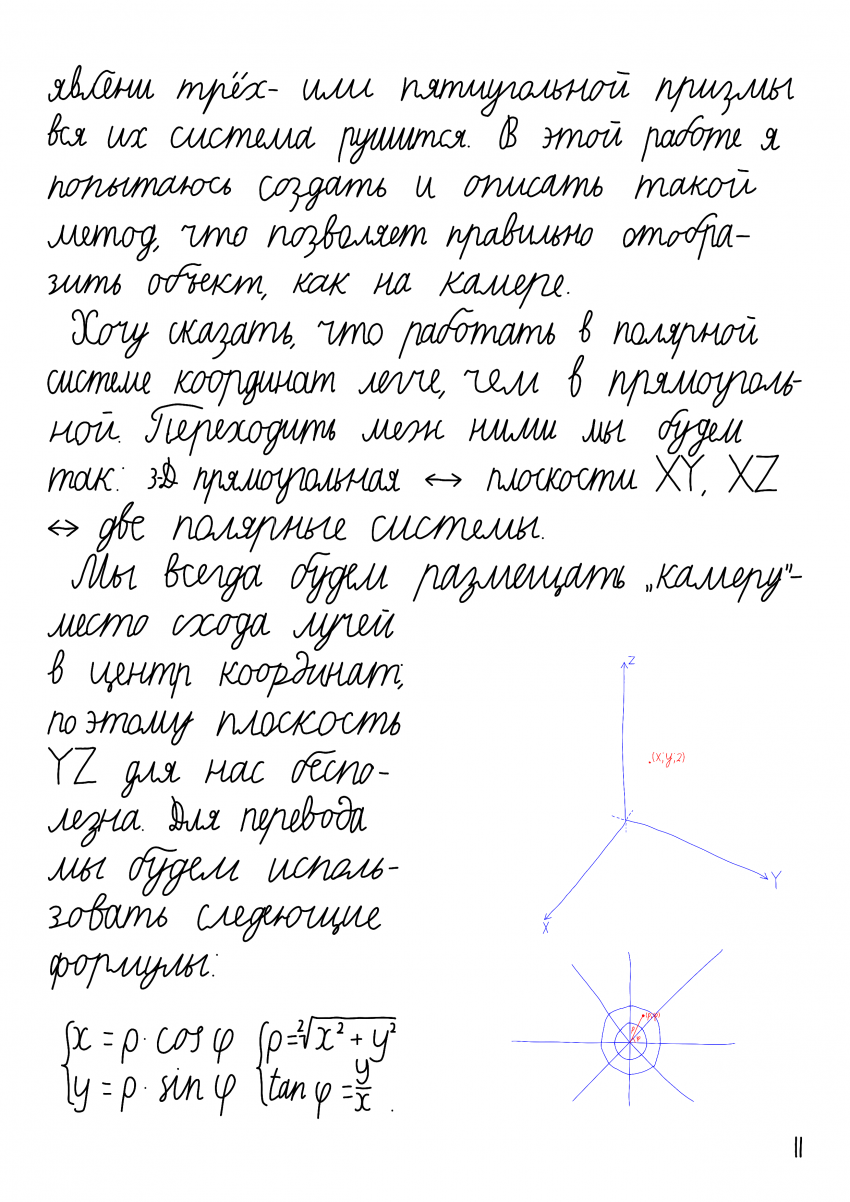 явлени трёх- или пятиугольной призмы
вся их система рушится. В этой работе я
попытаюсь создать и описать такой
метод, что позволяет правильно отобра-
зить объект, как на камере.
Хочу сказать, что работать в полярной
системе координат легче, чем в прямоуголь-
ной. Переходить меж ними мы будем
так: 3-D прямоугольная ↔ плоскости XY, XZ
↔ две полярные системы.
Мы всегда будем размещать „камеру"-
место схода лучей
в центр координат;
по этому плоскость
YZ для нас беспо-
лезна. Для перевода
мы будем исполь-
зовать следеющие
формулы:
{x = ρ · cos φ {ρ = ²√x² + y²
{y = ρ · sin φ {tan φ = y/x .
Z
(x;y;z)
Y
X
ρ
φ
11